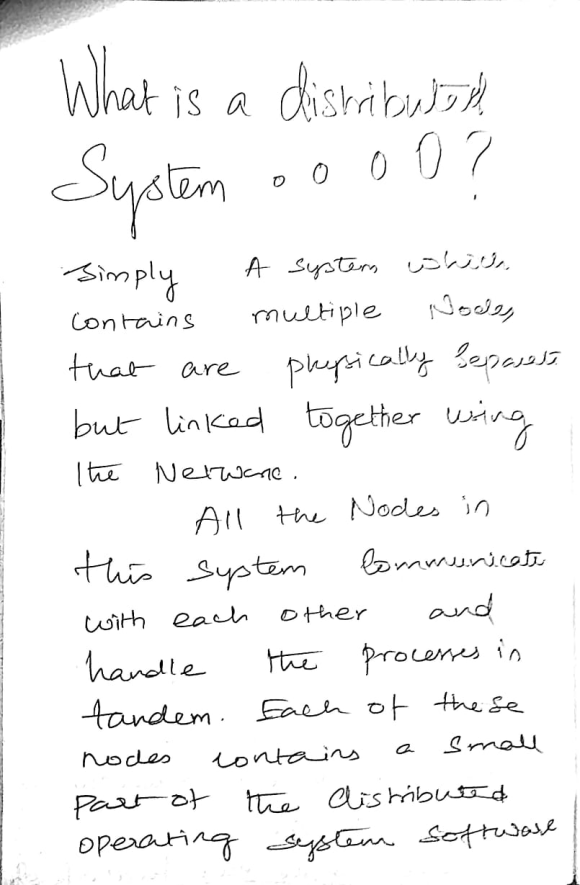 What is a distributed
System . . . . ?
Simply A system which
contains multiple Nodes
that are physically Separate
but linked together using
the Network.
All the Nodes in
this system Communicate
with each other and
handle the processes in
tandem. Each of these
nodes contains a small
part of the distributed
operating system software